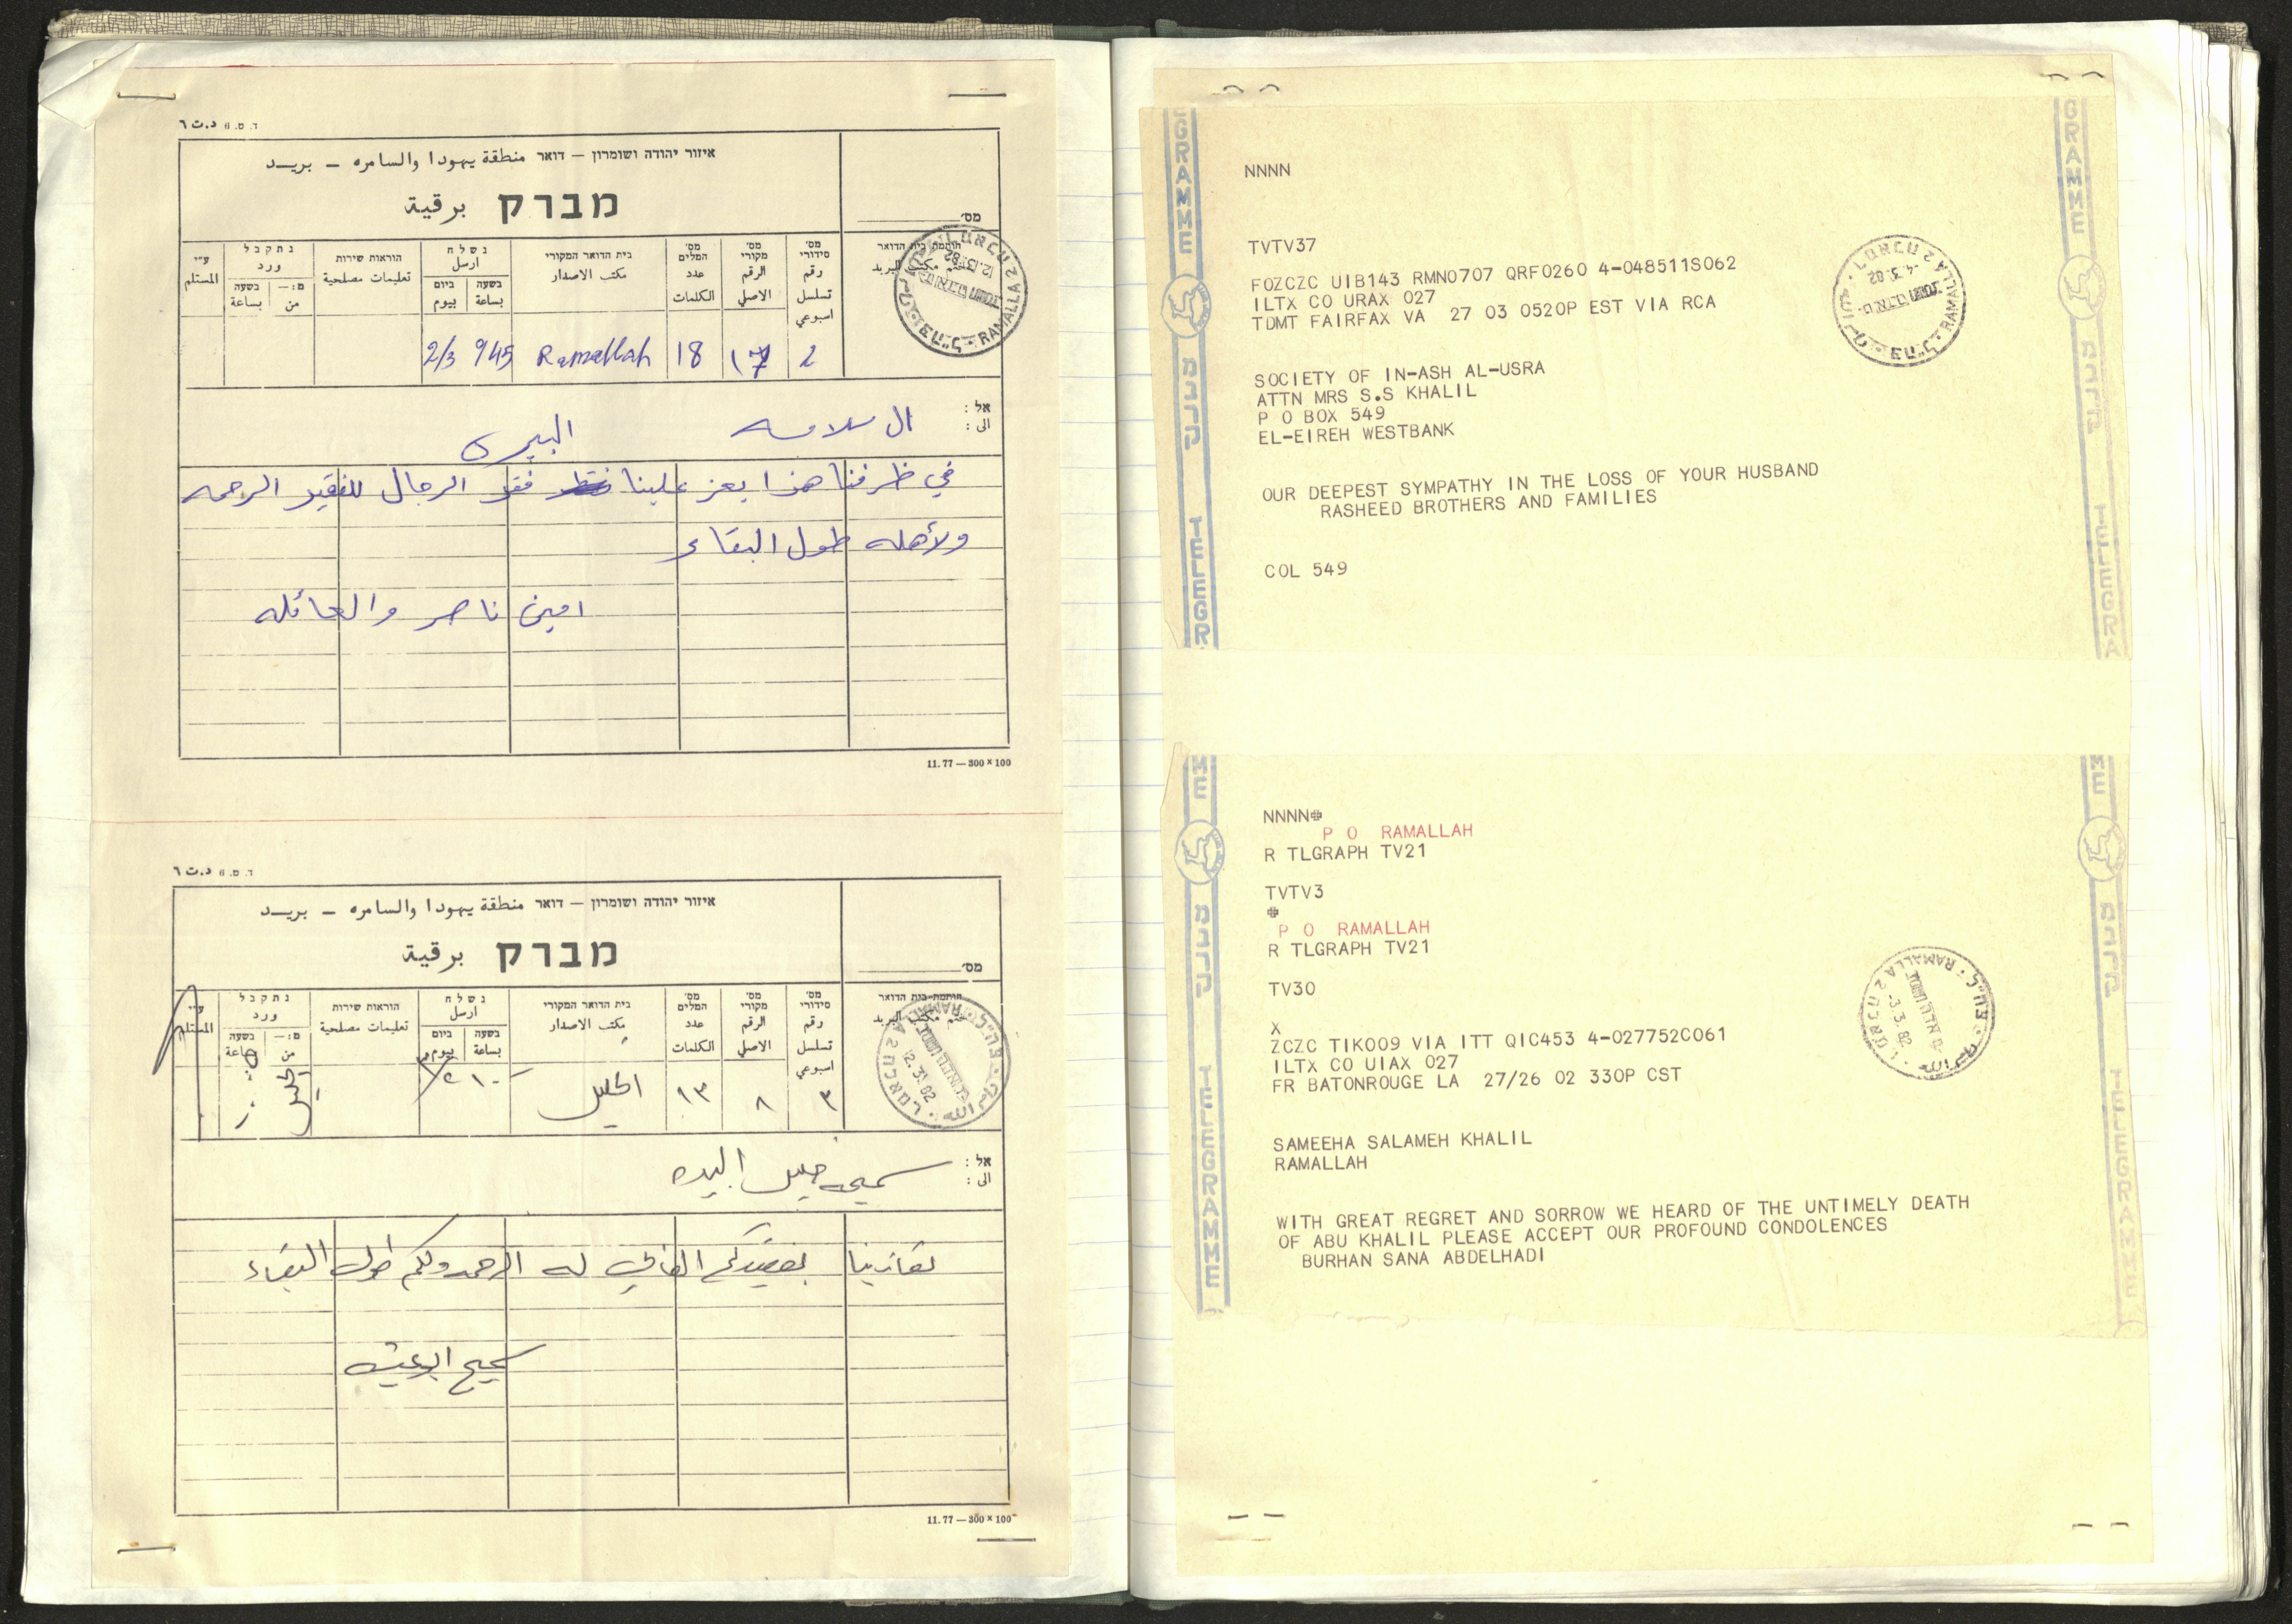 ד. ט. 6 د.ت ٦
איזור יהודה ושומרון – דואר منطقة يهودا والسامره – بريــد
מברק برقية
מס׳
חותמת בית הדואר
ختم مكتب البريد
מס׳ סידורי رقم تسلسل اسبوعي
מס׳ מקורי الرقم الاصلي
מס׳ המלים عدد الكلمات
בית הדואר המקורי مكتب الاصدار
נשלח ارسل
בשעה بساعة ביום بيوم
הוראות שירות تعليمات مصلحية
נתקבל ورد
מ:— من בשעה بساعة
ע״י المستلم
2 17 18 Ramallah 945 2/3
RAMALLA 2
אל :
الى : ال سلامه البيره
في ظرفنا هذا يعز علينا فقد الرجال للفقيد الرحمه
ولأهله طول البقاء
امين ناصر والعائله
11.77 — 300 × 100
ד. ט. 6 د.ت ٦
איזור יהודה ושומרון – דואר منطقة يهودا والسامره – بريــد
מברק برقية
מס׳
חותמת בית הדואר
ختم مكتب البريد
מס׳ סידורי رقم تسلسل اسبوعي
מס׳ מקורי الرقم الاصلي
מס׳ המלים عدد الكلمات
בית הדואר המקורי مكتب الاصدار
נשלח ارسل
בשעה بساعة ביום بيوم
הוראות שירות تعليمات مصلحية
נתקבל ورد
מ:— من בשעה بساعة
ע״י المستلم
٣ ٨ ١٣ الخليل الخليل
אל :
الى : سميحه خليل البيره
تعازينا بفقيدكم الغالي له الرحمه ولكم طول البقاء
سميح ابو عيشه
11.77 — 300 × 100
TELEGRAMME
מברק
NNNN
TVTV37
FOZCZC UIB143 RMN0707 QRF0260 4-048511S062
ILTX CO URAX 027
TDMT FAIRFAX VA 27 03 0520P EST VIA RCA
RAMALLA 2
-4.3.82
SOCIETY OF IN-ASH AL-USRA
ATTN MRS S.S KHALIL
P O BOX 549
EL-EIREH WESTBANK
OUR DEEPEST SYMPATHY IN THE LOSS OF YOUR HUSBAND
RASHEED BROTHERS AND FAMILIES
COL 549
TELEGRAMME
מברק
NNNN✠
P O RAMALLAH
R TLGRAPH TV21
TVTV3
✠
P O RAMALLAH
R TLGRAPH TV21
TV30
X
ZCZC TIK009 VIA ITT QIC453 4-027752C061
ILTX CO UIAX 027
FR BATONROUGE LA 27/26 02 330P CST
RAMALLA 2
-3.3.82
SAMEEHA SALAMEH KHALIL
RAMALLAH
WITH GREAT REGRET AND SORROW WE HEARD OF THE UNTIMELY DEATH
OF ABU KHALIL PLEASE ACCEPT OUR PROFOUND CONDOLENCES
BURHAN SANA ABDELHADI